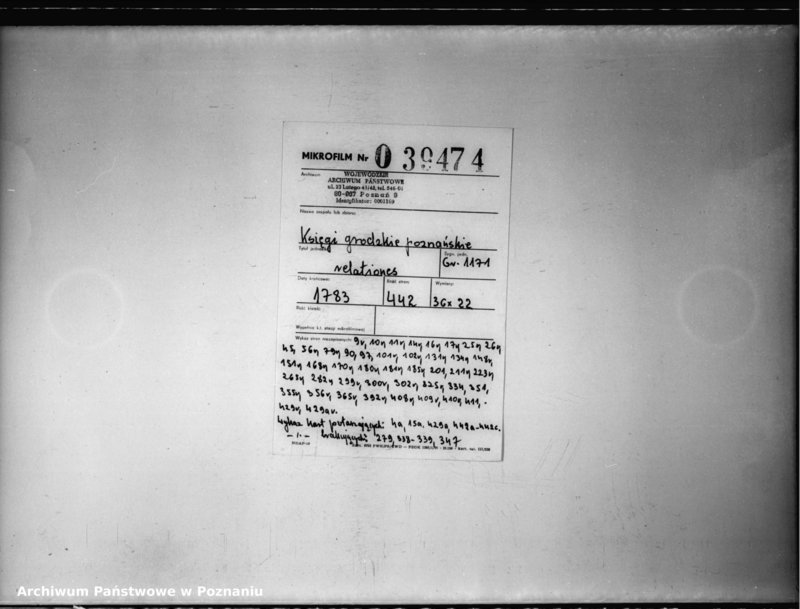 MIKROFILM Nr 0 39474
Archiwum: WOJEWÓDZKIE
ARCHIWUM PAŃSTWOWE
ul. 23 Lutego 41/43, tel. 546-01
60-967 Poznań 9
Identyfikator: 0001169
Nazwa zespołu lub zbioru:
Księgi grodzkie poznańskie
Tytuł jednostki: Sygn. jedn.
relationes Gr. 1171
Daty krańcowe: Ilość stron: Wymiary:
1783 442 36x22
Ilość klatek:
Wypełnia k.t. stacji mikrofilmowej
Wykaz stron niezapisanych: 9v, 10v, 11v, 14v, 16v, 17v, 25v, 26v,
45, 56v, 79v, 90, 97, 101v, 102v, 131v, 134v, 148v,
151v, 168v, 170v, 180v, 181v, 185v, 201, 211v, 223v,
268v, 282v, 299v, 300v, 302v, 325v, 334, 351,
355v, 356v, 365v, 392v, 408v, 409v, 410v, 411,
429v, 429av.
Wykaz kart powtarzających: 4a, 15a, 429a, 442a-442c.
-"- brakujących: 279, 338-339, 347
Archiwum Państwowe w Poznaniu